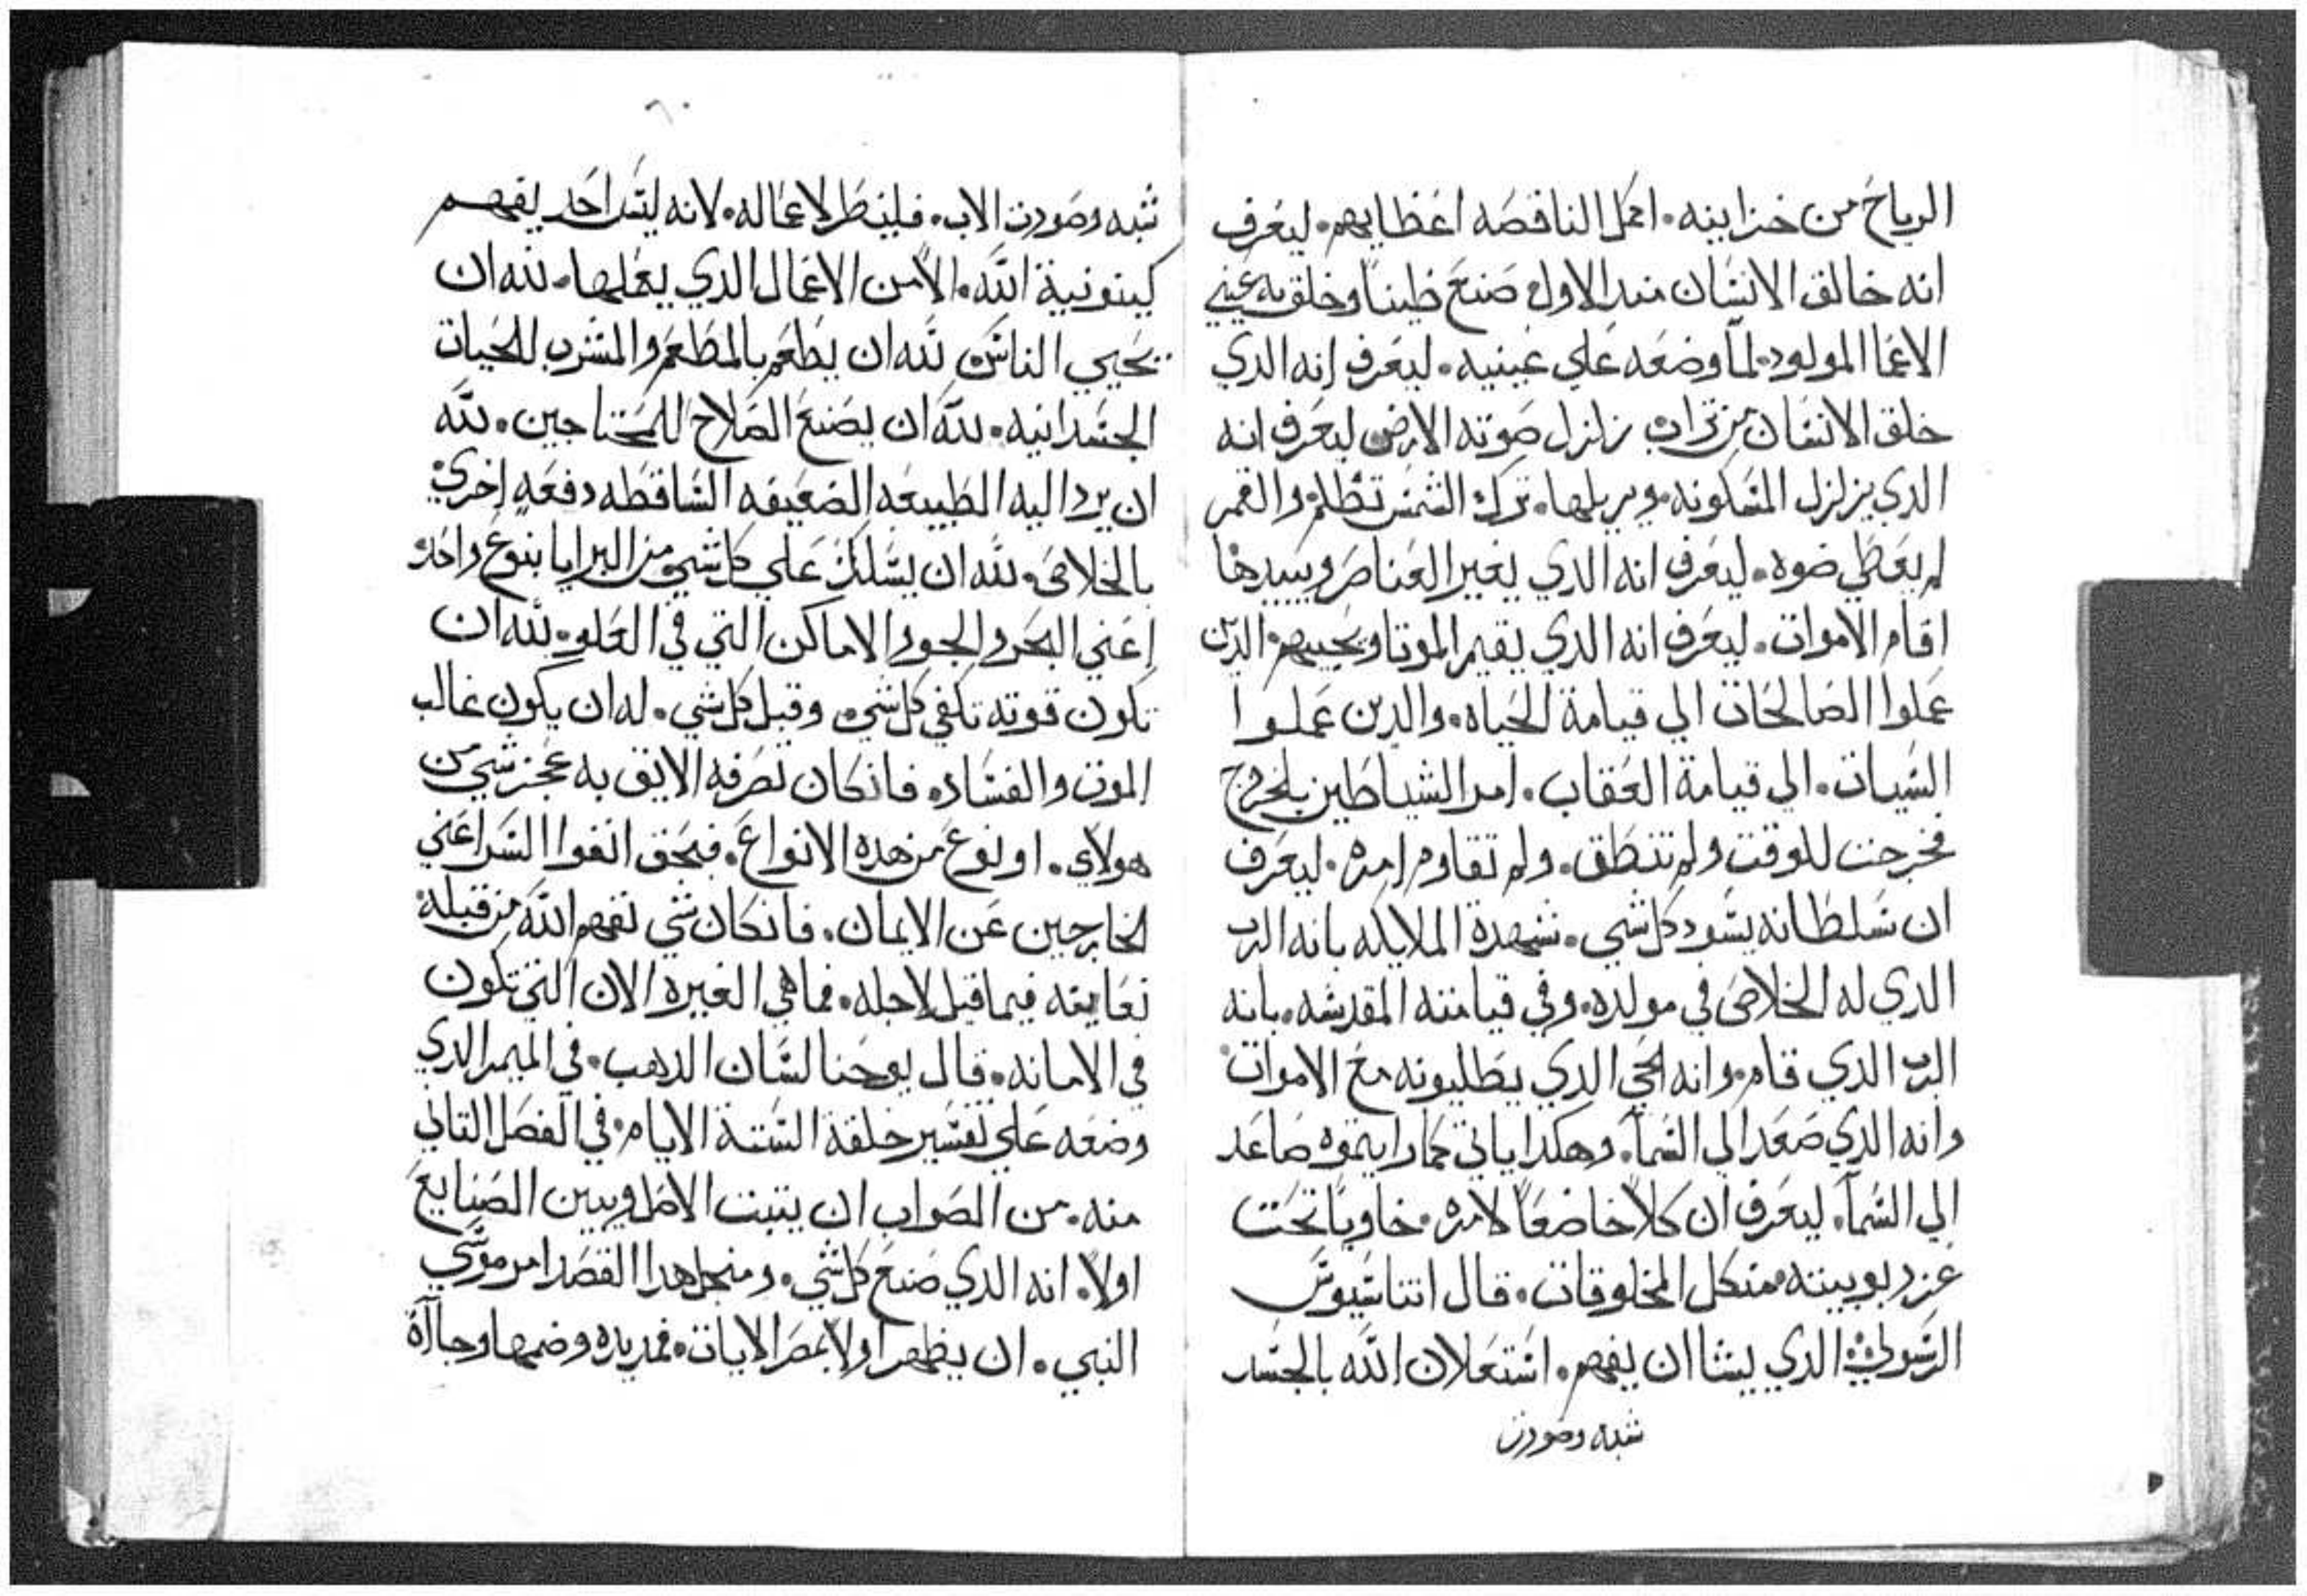 الرياح من خزاينه. اكمل الناقصه اعضايهم. ليعرف
انه خالق الانسان منذ الاول. صنع طيناً وخلق به عيني
الاعما المولود. لمآ وضعه علي عينيه. ليعرف انه الدي
خلق الانسان من تراب. زلزل صوته الارض ليعرف انه
الدي يزلزل المسكونه. ويربلها. ترك الشمس تظلم والقمر
لم يعطي ضوه. ليعرف انه الدي يغير العناصر ويبيدها
اقام الاموات. ليعرف انه الدي يقيم الموتا ويحييهم. الدين
عملوا الصالحات الي قيامة الحياه. والدين عملوا
السيات. الي قيامة العقاب. امر الشياطين بالخروج
فخرجت للوقت ولم تنطق. ولم تقاوم امره. ليعرف
ان سلطانه يسود كل شي. شهدة الملايكه بانه الرب
الدي له الخلاص في مولده. وفي قيامته المقدسه. بانه
الرب الدي قام. وانه الحي الدي يطلبونه مع الاموات
وانه الدي صعد الي السمآ. وهكدا ياتي كما رايتموه صاعد
الي السمآ. ليعرف ان كلاً خاضعاً لامره. خاوياً تحت
عز ربوبيته من كل المخلوقات. قال اتناسيوس
الرسولي الدي يشا ان يفهم. استعلان الله بالجسد
شبه وصورت
٦٠
شبه وصورت الاب. فلينظر لاعماله. لانه ليس احد يفهم
كينونية الله. الا من الاعمال الدي يعملها. لله ان
يحيي الناس. لله ان يطعم بالمطعم والمشرب للحيات
الجسدانيه. لله ان يصنع الصلاح للمحتاجين. لله
ان يرد اليه الطبيعه الضعيفه الساقطه دفعه اخري
بالخلاص. لله ان يسلك علي كل شي من البرايا بنوع واحد
اعني البحر والجو والاماكن التي في العلو. لله ان
تكون قوته تكفي كل شي. وقبل كل شي. له ان يكون غالب
الموت والفساد. فانكان تصرفه الايق به عجز شي من
هولاي. او نوع من هده الانواع. فبحق انفوا السر اعني
الخارجين عن الايمان. فانكان شي تفهم الله من قبله
تعاينه فيما قبل لاجله. فما هي الغيره الان التي تكون
في الامانه. قال يوحنا لسان الدهب. في الميمر الدي
وضعه علي تفسير خلقة الستة الايام. في الفصل التاني
منه. من الصواب ان يتبت الاصل ويبين الصنايع
اولاً. انه الدي صنع كل شي. ومنجل هدا القصد امر موسي
النبي. ان يظهر اولاً بمصر الايات. فمد يده وضمها وجا آآة